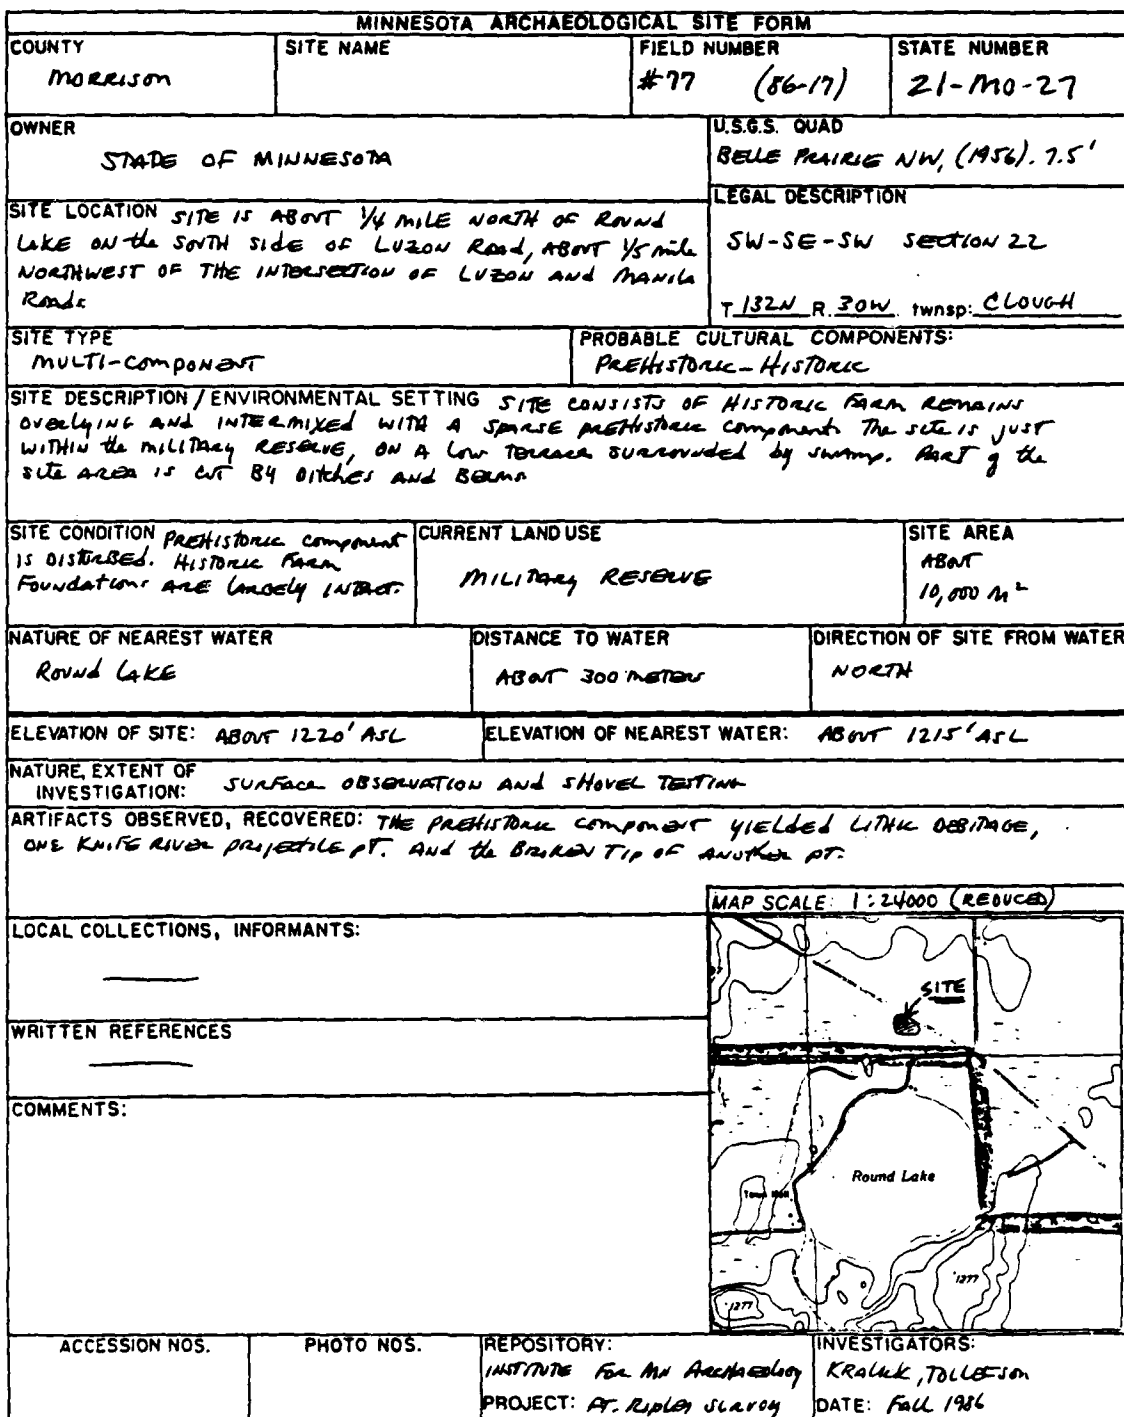 MINNESOTA ARCHAEOLOGICAL SITE FORM
COUNTY
Morrison
SITE NAME
FIELD NUMBER
#77 (86-17)
STATE NUMBER
21-MO-27
OWNER
STATE OF MINNESOTA
U.S.G.S. QUAD
BELLE PRAIRIE NW, (1956). 7.5'
SITE LOCATION SITE IS ABOUT 1/4 MILE NORTH OF ROUND
LAKE ON the SOUTH SIDE OF LUZON ROAD, ABOUT 1/5 mile
NORTHWEST OF THE INTERSECTION OF LUZON AND MANILA
Roads
LEGAL DESCRIPTION
SW-SE-SW SECTION 22
T. 132N R. 30W twnsp: CLOUGH
SITE TYPE
MULTI-COMPONENT
PROBABLE CULTURAL COMPONENTS:
PREHISTORIC-HISTORIC
SITE DESCRIPTION / ENVIRONMENTAL SETTING SITE CONSISTS OF HISTORIC FARM REMAINS
OVERLYING AND INTERMIXED WITH A SPARSE PREHISTORIC component. The site is just
WITHIN the MILITARY RESERVE, ON A LOW TERRACE SURROUNDED by swamp. PART of the
site AREA IS CUT BY DITCHES AND BERMS
SITE CONDITION PREHISTORIC component
IS DISTURBED. HISTORIC FARM
FOUNDATIONS ARE LARGELY INTACT.
CURRENT LAND USE
MILITARY RESERVE
SITE AREA
ABOUT
10,000 M²
NATURE OF NEAREST WATER
ROUND LAKE
DISTANCE TO WATER
ABOUT 300 METERS
DIRECTION OF SITE FROM WATER
NORTH
ELEVATION OF SITE: ABOUT 1220' ASL
ELEVATION OF NEAREST WATER: ABOUT 1215' ASL
NATURE, EXTENT OF
INVESTIGATION: SURFACE OBSERVATION AND SHOVEL TESTING
ARTIFACTS OBSERVED, RECOVERED: THE PREHISTORIC COMPONENT YIELDED LITHIC DEBITAGE,
ONE KNIFE RIVER PROJECTILE PT. AND the BROKEN TIP OF ANOTHER PT.
MAP SCALE: 1:24000 (REDUCED)
LOCAL COLLECTIONS, INFORMANTS:
SITE
WRITTEN REFERENCES
COMMENTS:
Round Lake
Town Hall
1277
1277
ACCESSION NOS.
PHOTO NOS.
REPOSITORY:
INSTITUTE FOR MN ARCHAEOLOGY
PROJECT: FT. RIPLEY SURVEY
INVESTIGATORS:
KRALICK, TOLLEFSON
DATE: FALL 1986